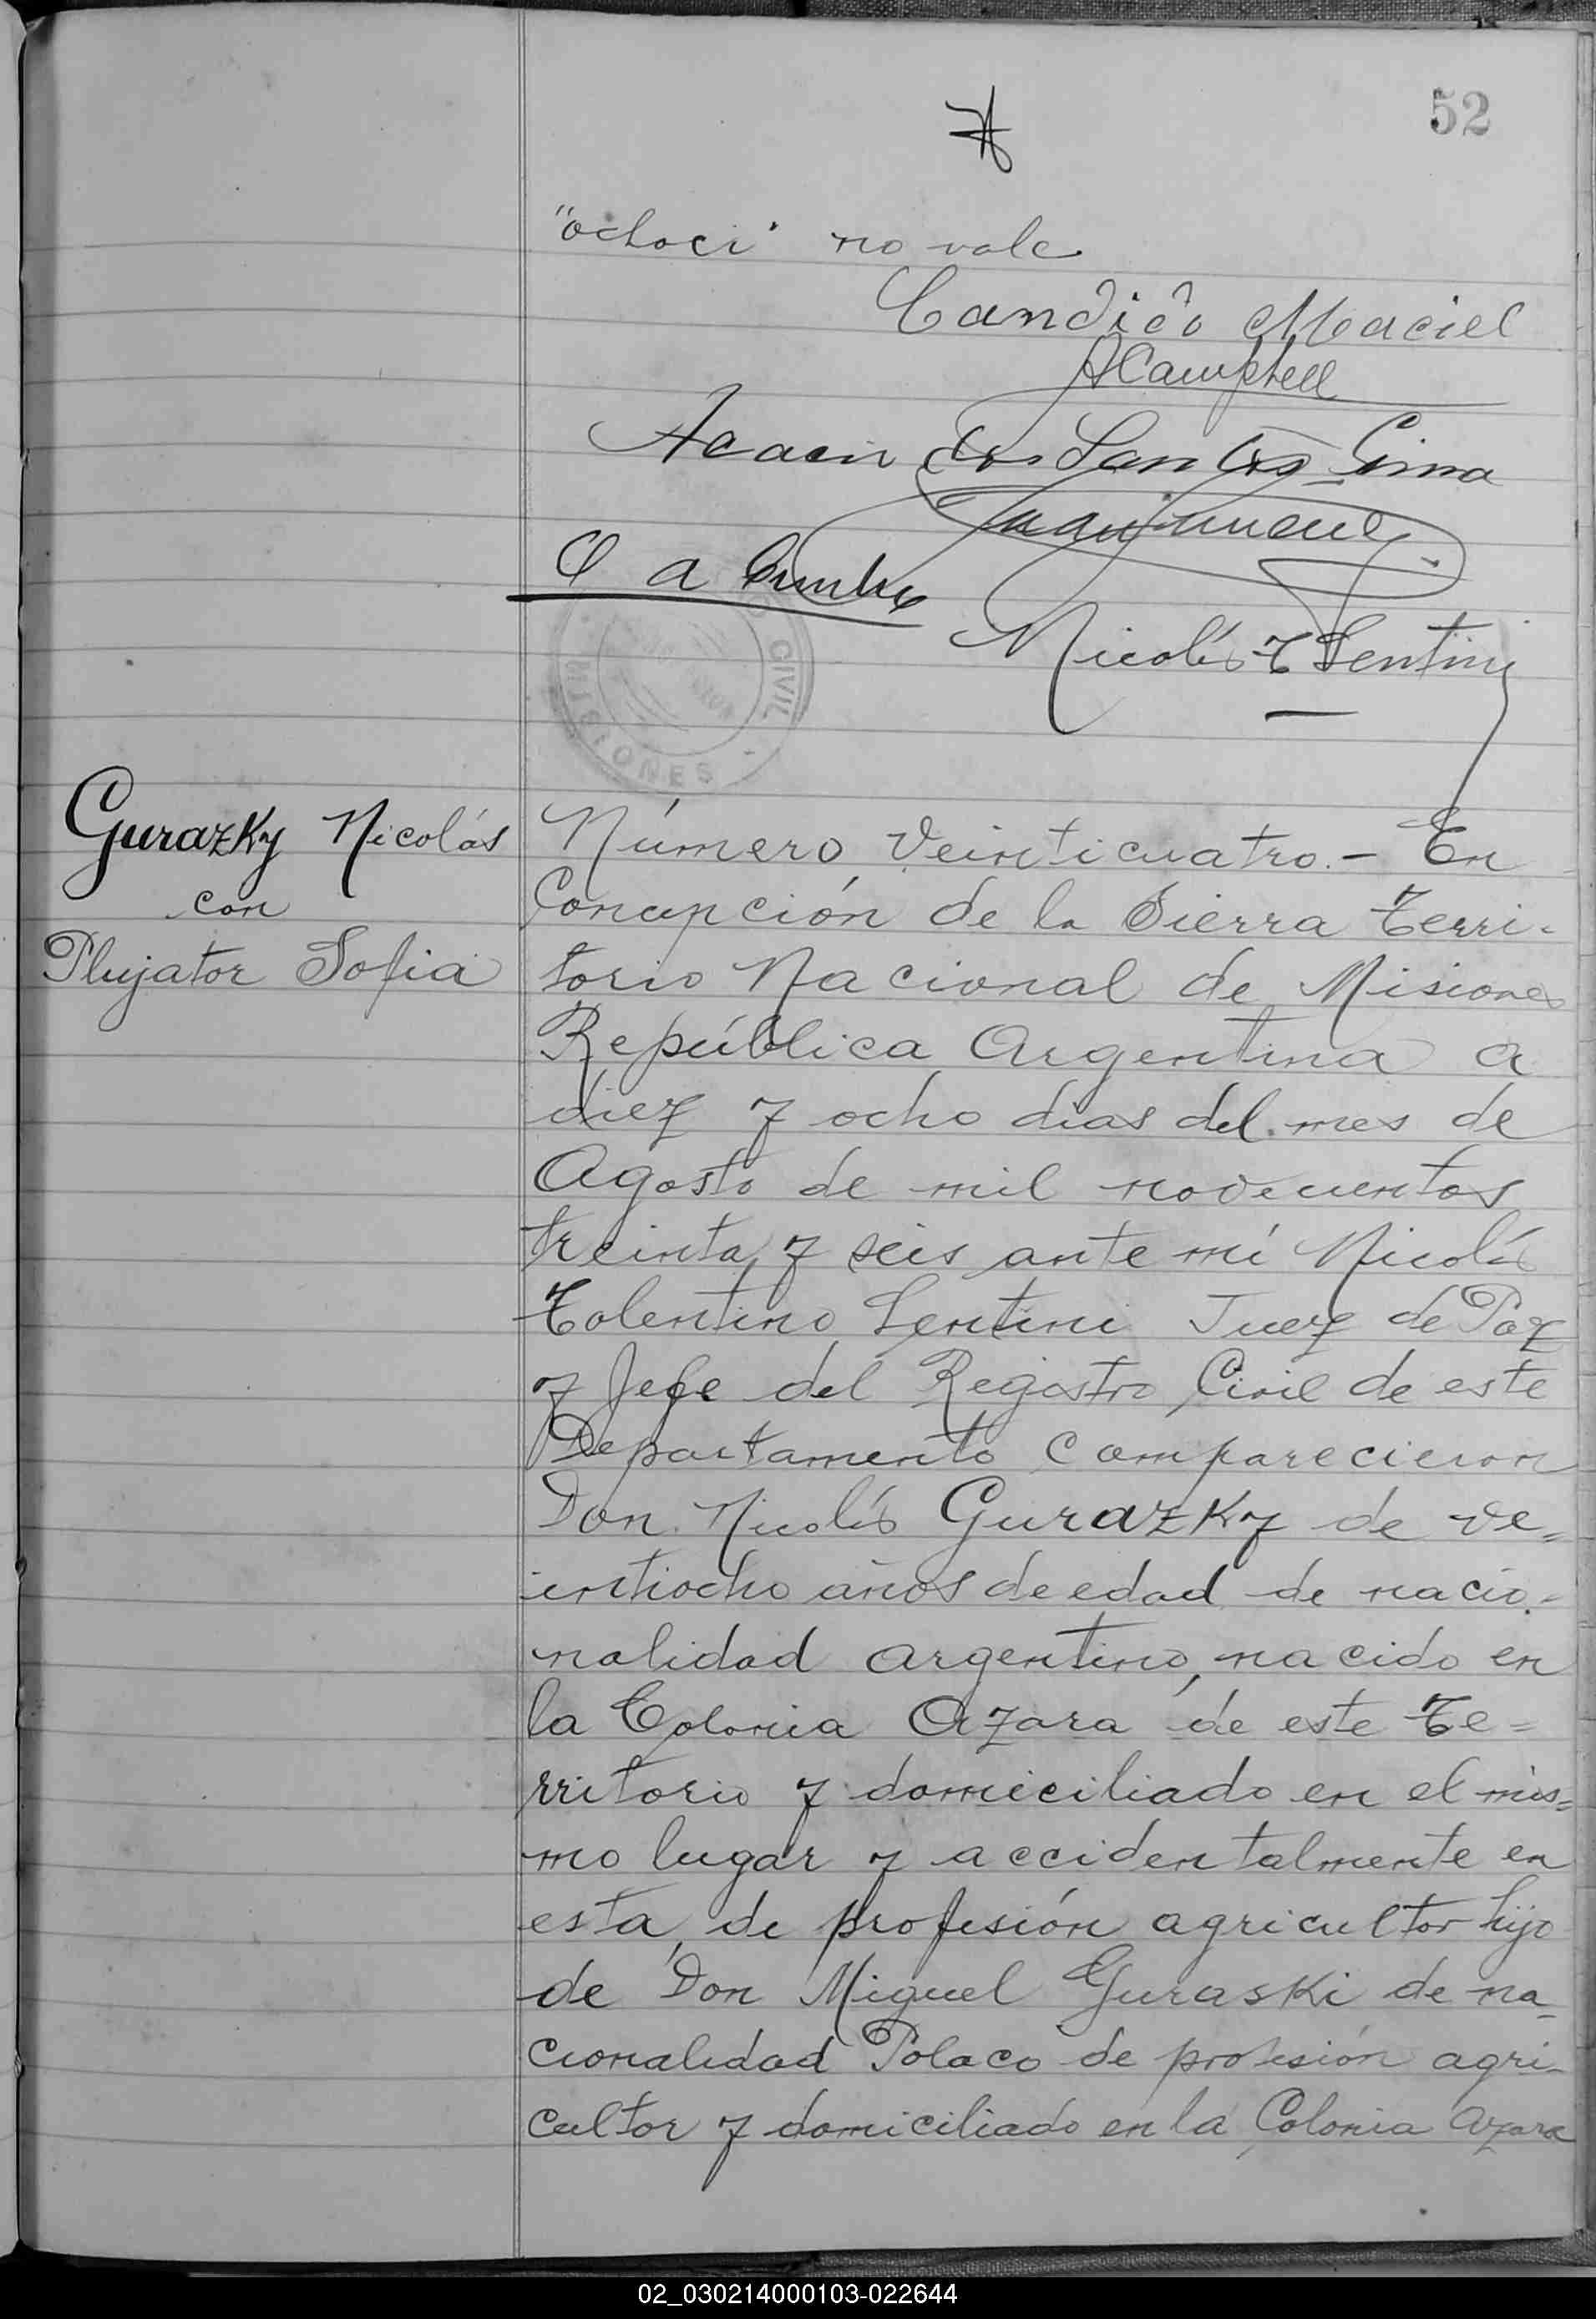 52
"ochoci" no vale
Candido Maciel
ACampbell
Acacio dos Santos Lima
Nicolás T Sentini
CIVIL
MISIONES
Gurazky Nicolás
con
Plujator Sofia
Número Veinticuatro.- En
Concepción de la Sierra Terri-
torio Nacional de Misiones
República Argentina a
diez y ocho dias del mes de
Agosto de mil novecientos
treinta y seis ante mí Nicolás
Tolentino Sentini Juez de Paz
y Jefe del Registro Civil de este
Departamento comparecieron
Don Nicolás Gurazky de ve=
intiocho años de edad de nacio=
nalidad argentino, nacido en
la Colonia Azara de este Te=
rritorio y domiciliado en el mis=
mo lugar y accidentalmente en
esta, de profesión agricultor hijo
de Don Miguel Guraski de na-
cionalidad Polaco de profesión agri-
cultor y domiciliado en la Colonia Azara
02_030214000103-022644